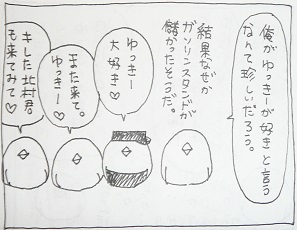 俺がゆっきーが好きと言う
なんて珍しいだろう。
結果なぜか
ガソリンスタンドが
儲かったそうだ。
ゆっきー
大好き♡
また来て。
ゆっきー♡
キした北村君
も来てみて♡